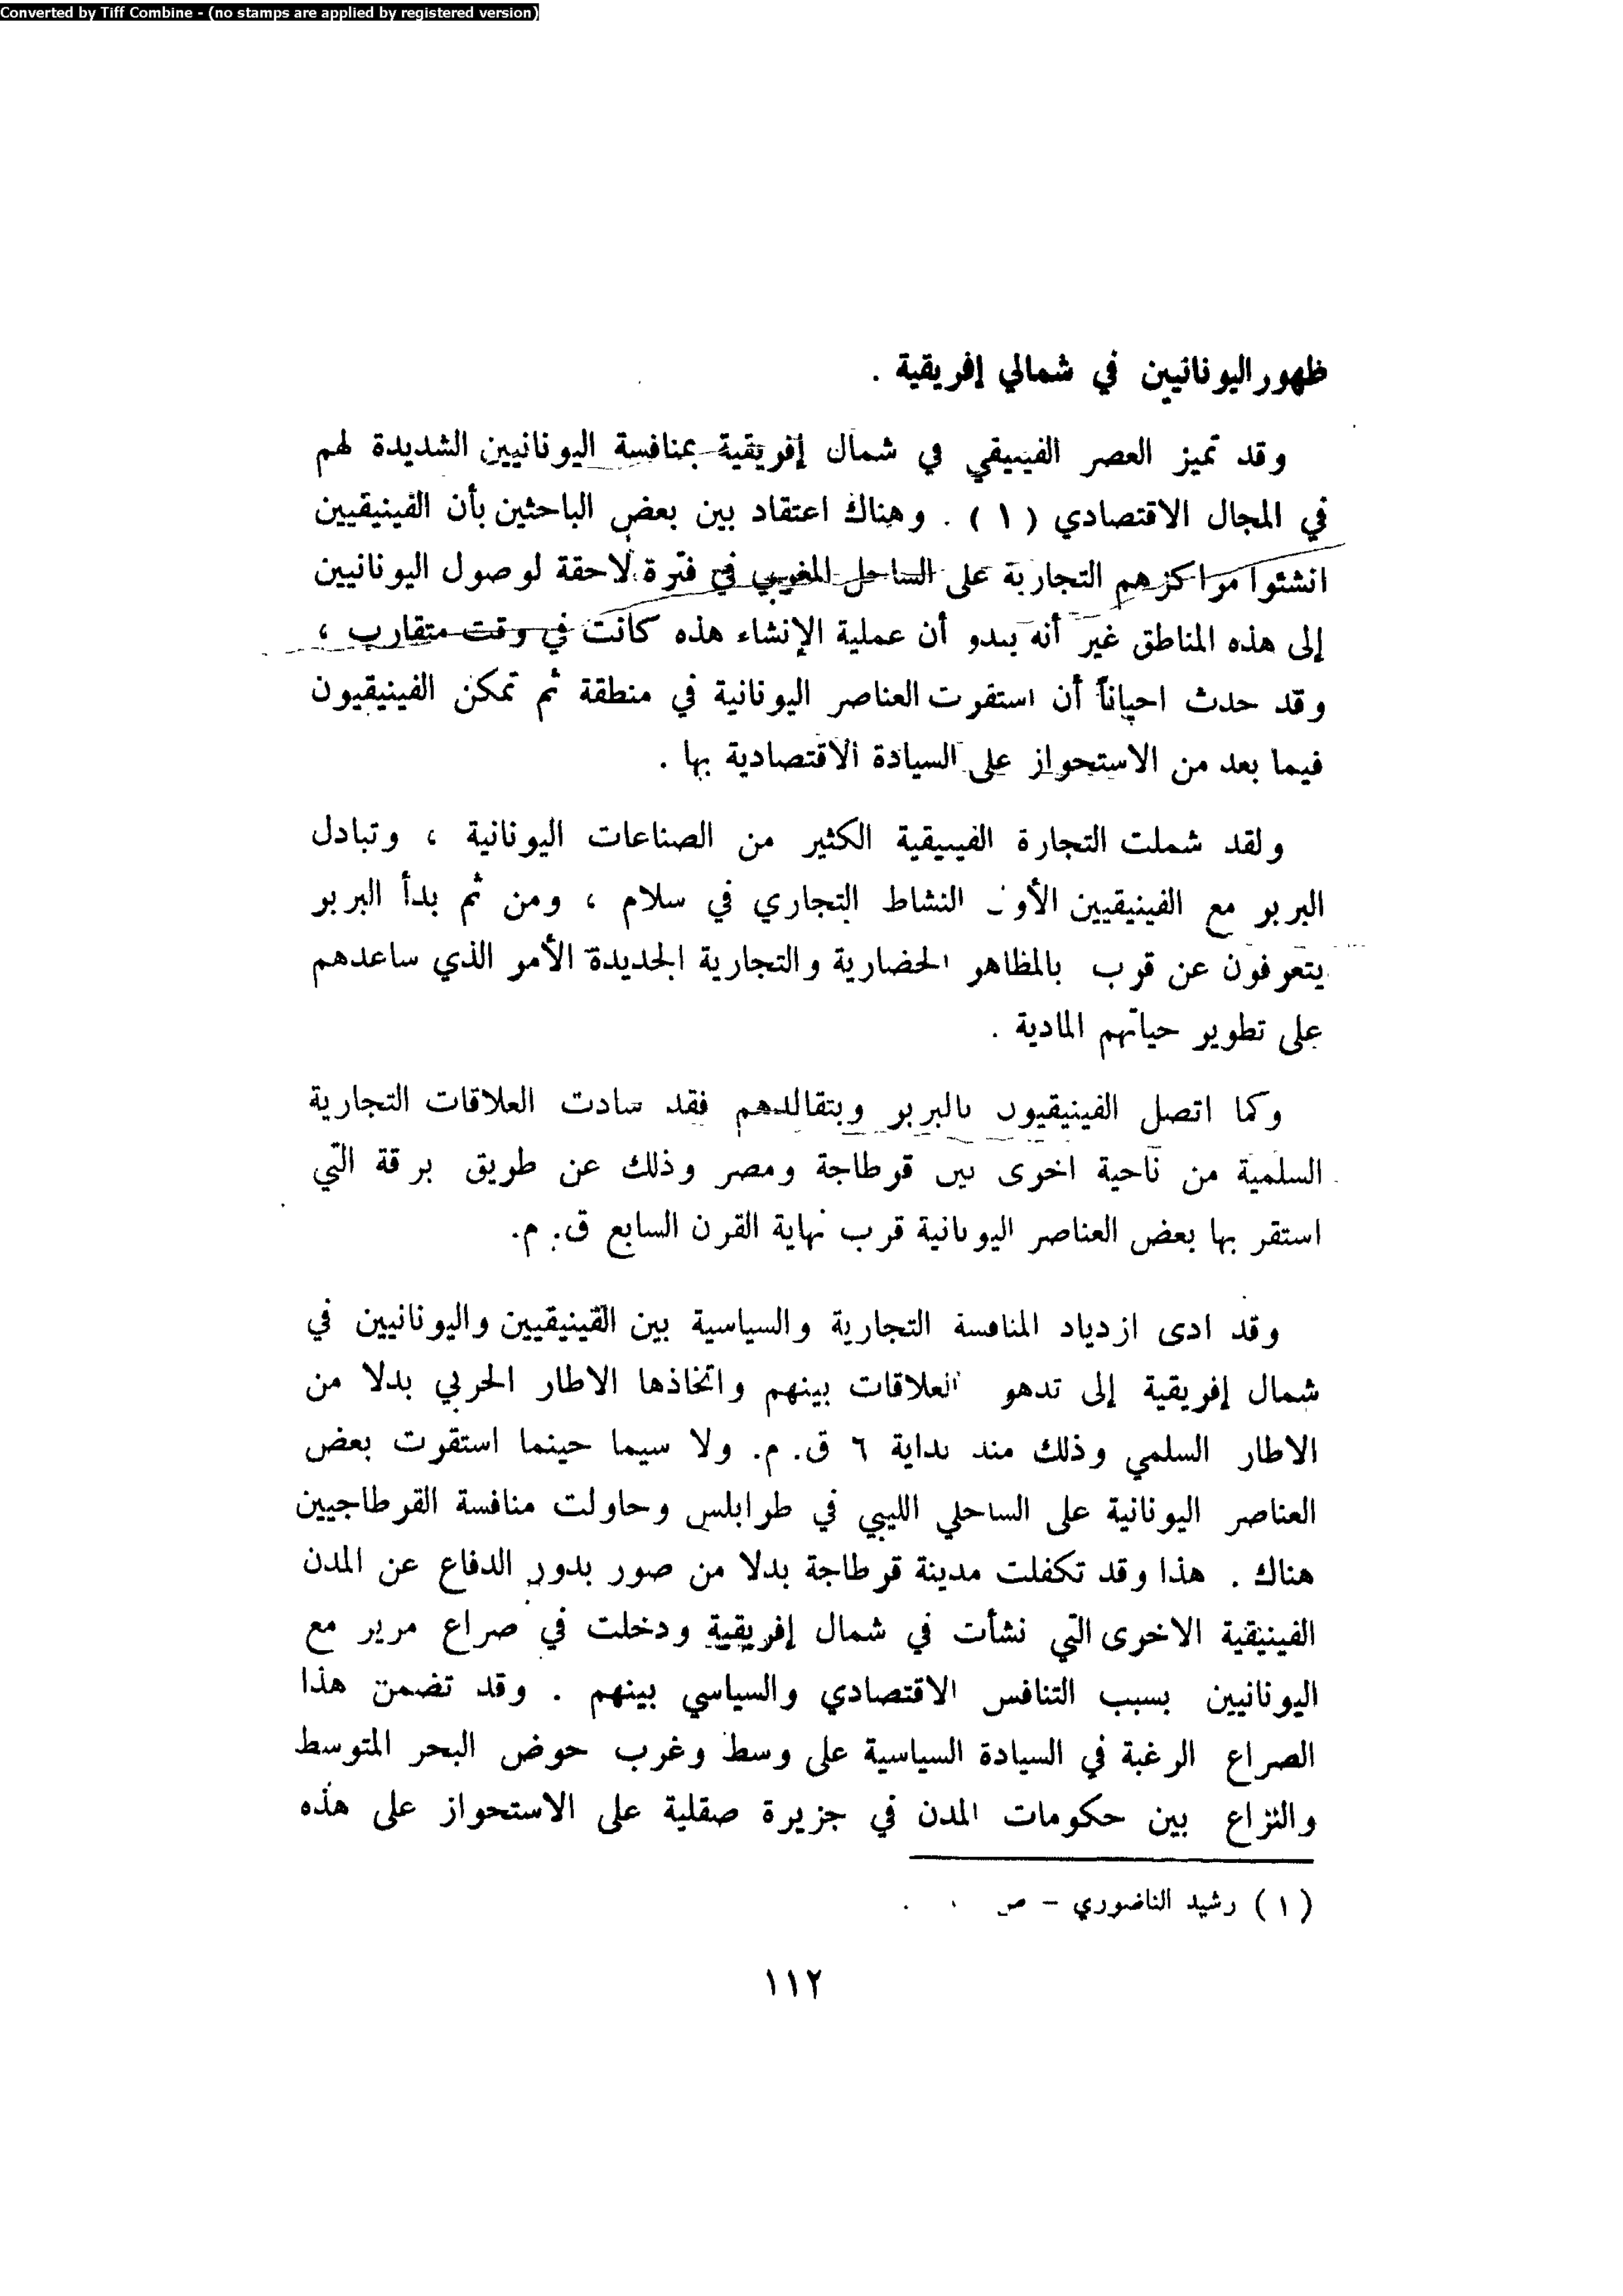 Converted by Tiff Combine - (no stamps are applied by registered version)
ظهور اليونانيين في شمالي إفريقية .
وقد تميز العصر الفينيقي في شمال إفريقية بمنافسة اليونانيين الشديدة لهم
في المجال الاقتصادي ( ١ ) . وهناك اعتقاد بين بعض الباحثين بأن الفينيقيين
انشئوا مراكزهم التجارية على الساحل المغربي في فترة لاحقة لوصول اليونانيين
إلى هذه المناطق غير أنه يبدو أن عملية الإنشاء هذه كانت في وقت متقارب ،
وقد حدث احياناً أن استقرت العناصر اليونانية في منطقة ثم تمكن الفينيقيون
فيما بعد من الاستحواز على السيادة الاقتصادية بها .
ولقد شملت التجارة الفينيقية الكثير من الصناعات اليونانية ، وتبادل
البربر مع الفينيقيين النشاط التجاري في سلام ، ومن ثم بدأ البربر
يتعرفون عن قرب بالمظاهر الحضارية والتجارية الجديدة الأمر الذي ساعدهم
على تطوير حياتهم المادية .
وكما اتصل الفينيقيون بالبربر وبتقالدهم فقد سادت العلاقات التجارية
السلمية من ناحية اخرى بين قرطاجة ومصر وذلك عن طريق برقة التي
استقر بها بعض العناصر اليونانية قرب نهاية القرن السابع ق. م.
وقد ادى ازدياد المنافسة التجارية والسياسية بين الفينيقيين واليونانيين في
شمال إفريقية إلى تدهو العلاقات بينهم واتخاذها الاطار الحربي بدلا من
الاطار السلمي وذلك منذ بداية ٦ ق. م. ولا سيما حينما استقرت بعض
العناصر اليونانية على الساحلي الليبي في طرابلس وحاولت منافسة القرطاجيين
هناك . هذا وقد تكفلت مدينة قرطاجة بدلا من صور بدور الدفاع عن المدن
الفينيقية الاخرى التي نشأت في شمال إفريقية ودخلت في صراع مرير مع
اليونانيين بسبب التنافس الاقتصادي والسياسي بينهم . وقد تضمن هذا
الصراع الرغبة في السيادة السياسية على وسط وغرب حوض البحر المتوسط
والنزاع بين حكومات المدن في جزيرة صقلية على الاستحواز على هذه
( ١ ) رشيد الناضوري - ص
١١٢